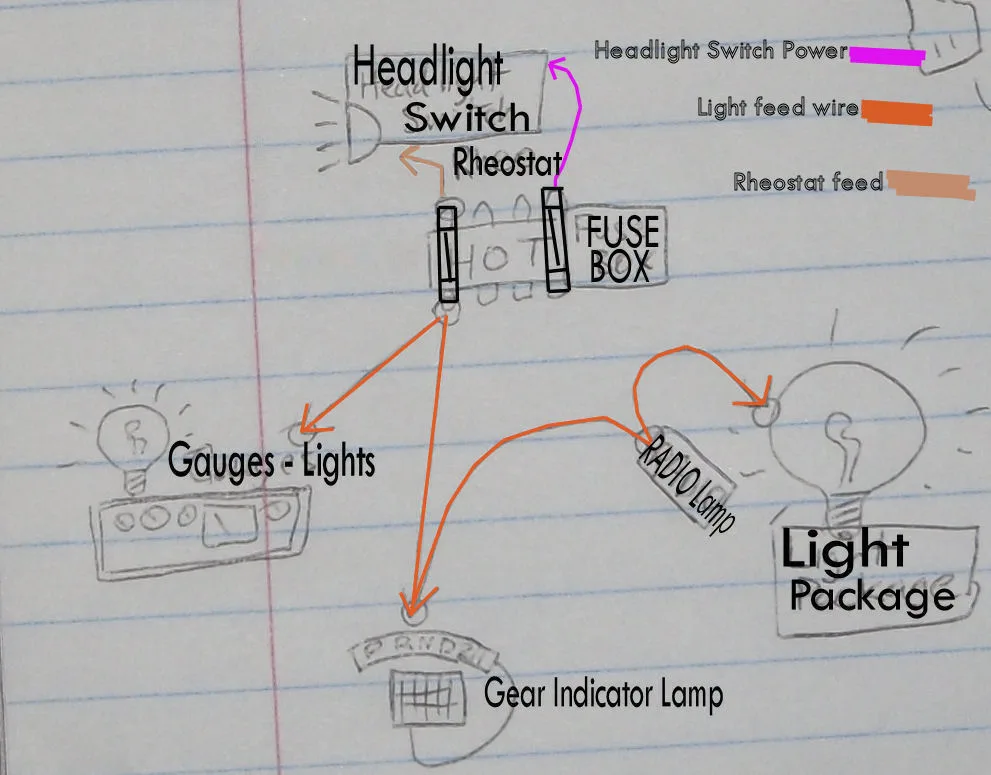 Headlight
Switch
Headlight Switch Power
Light feed wire
Rheostat
Rheostat feed
HOT
FUSE
BOX
Gauges - Lights
RADIO Lamp
Light
Package
PRND2
Gear Indicator Lamp